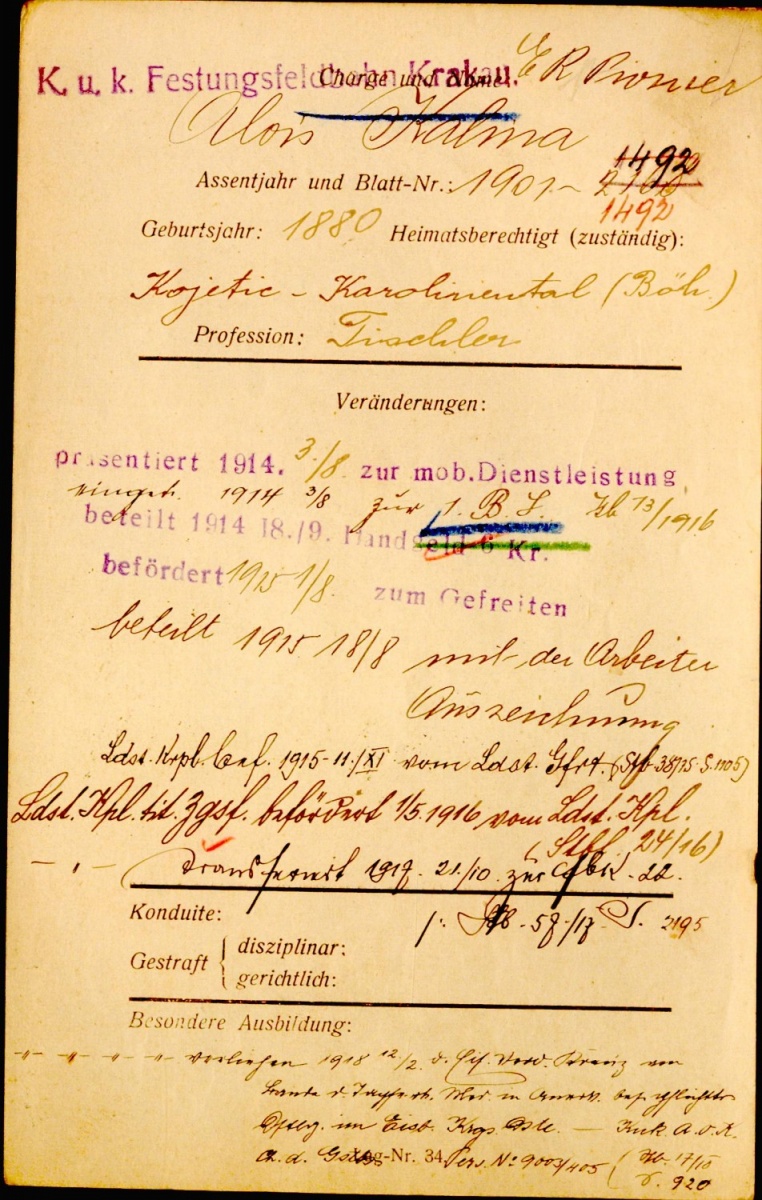 K. u. k. Festungsfeldbahn Krakau.
Charge und Name: ER Pionier
Alois Kalina
1492
Assentjahr und Blatt-Nr.: 1901 –
1492
Geburtsjahr: 1880 Heimatsberechtigt (zuständig):
Kojetic – Karolinental (Böh.)
Profession: Tischler
Veränderungen:
präsentiert 1914. 3/8. zur mob. Dienstleistung
eingeh. 1914 3/8 zur 1. B. L. Vb 13/1916
beteilt 1914 18./9. Handgeld 6 Kr.
befördert 1915 1/8. zum Gefreiten
beteilt 1915 18/8 mit der Arbeiter
Auszeichnung
Ldst. Krpl. bef. 1915-11./XI vom Ldst. Gfrt. (Stb 38/15 S. 1105)
Ldst. Kpl. tit. Zgsf. befördert 1/5. 1916 vom Ldst. Kpl.
24/16)
— „ — transferiert 1917. 21/10. zur
Konduite: 57/17 S. 2195
Gestraft disziplinar:
gerichtlich:
Besondere Ausbildung:
–„– –„– –„– –„– verliehen 1918 12/2. d. Eis. Verd. Kreuz am
Bande d. Tapferk. Med. in Anerk.
im Eisb. — KuK A.O.K.
Lag-Nr. 34. Pers. Nº 9003/405 (Vb. 17/18
S. 920